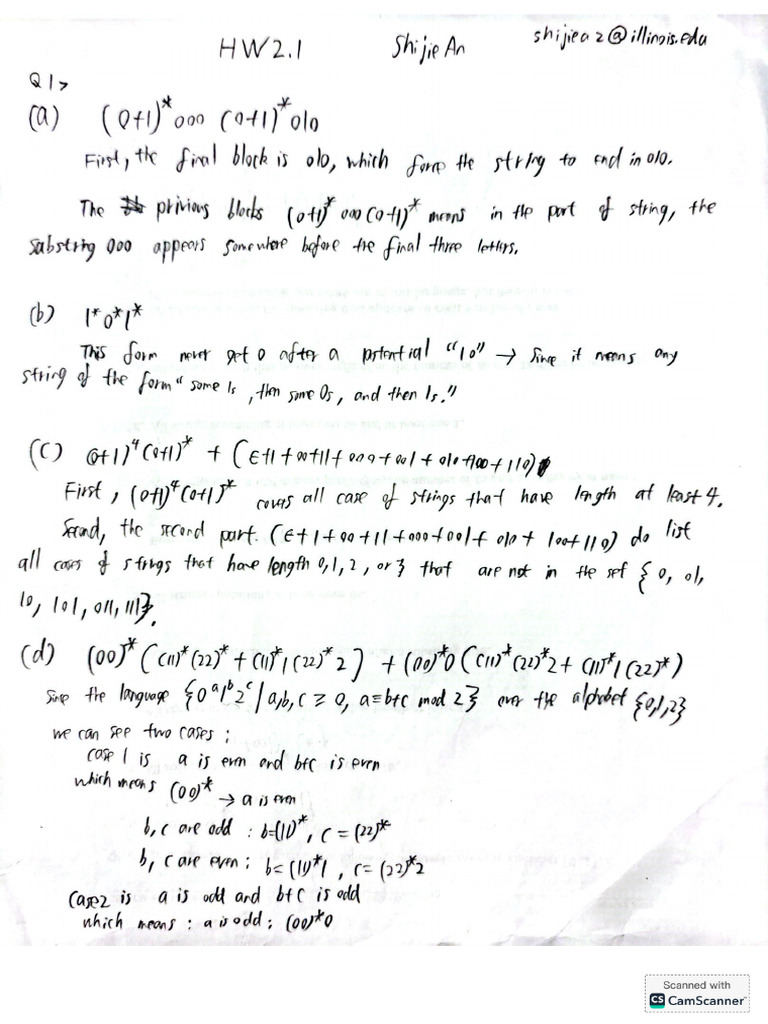 HW2.1 Shijie An shijiea2@illinois.edu
Q1>
(a) (0+1)*000 (0+1)*010
First, the final block is 010, which force the string to end in 010.
The privious blocks (0+1)* 000 (0+1)* means in the part of string, the
substring 000 appears somewhere before the final three letters.
(b) 1*0*1*
This form never get 0 after a potential "10" → Since it means any
string of the form "some 1s, then some 0s, and then 1s."
(c) (0+1)⁴(0+1)* + (ε+1+00+11+000+001+010+100+110)
First, (0+1)⁴(0+1)* covers all case of strings that have length at least 4.
Second, the second part. (ε+1+00+11+000+001+010+100+110) do list
all cases of strings that have length 0,1,2, or 3 that are not in the set {0, 01,
10, 101, 011, 111}.
(d) (00)*((11)*(22)* + (11)*1(22)*2) + (00)*0((11)*(22)*2 + (11)*1(22)*)
Since the language {0ᵃ1ᵇ2ᶜ | a,b,c ≥ 0, a≡b+c mod 2} over the alphabet {0,1,2}
we can see two cases:
case 1 is a is even and b+c is even
which means (00)* → a is even
b, c are odd : b=(11)*, c=(22)*
b, c are even : b=(11)*1, c=(22)*2
Case2 is a is odd and b+c is odd
which means : a is odd ; (00)*0
Scanned with
CS CamScanner